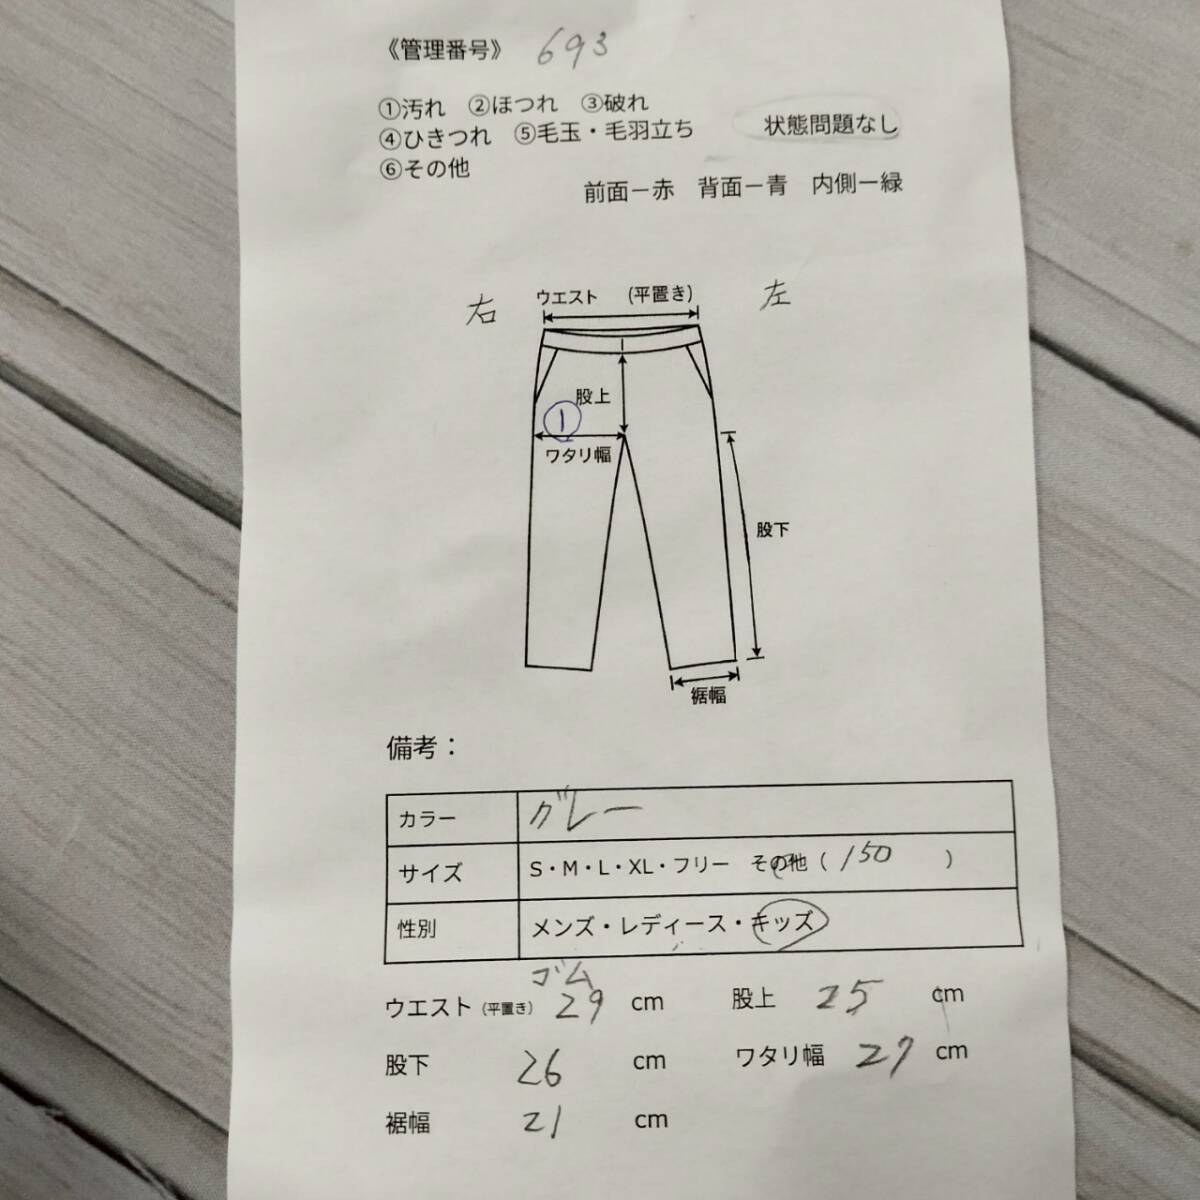 《管理番号》 693
①汚れ ②ほつれ ③破れ
④ひきつれ ⑤毛玉・毛羽立ち 状態問題なし
⑥その他
前面－赤 背面－青 内側－緑
右 ウエスト (平置き) 左
股上
①
ワタリ幅
股下
裾幅
備考：
カラー グレー
サイズ S・M・L・XL・フリー その他（ 150 ）
性別 メンズ・レディース・キッズ
ゴム
ウエスト（平置き） 29 cm 股上 25 cm
股下 26 cm ワタリ幅 27 cm
裾幅 21 cm